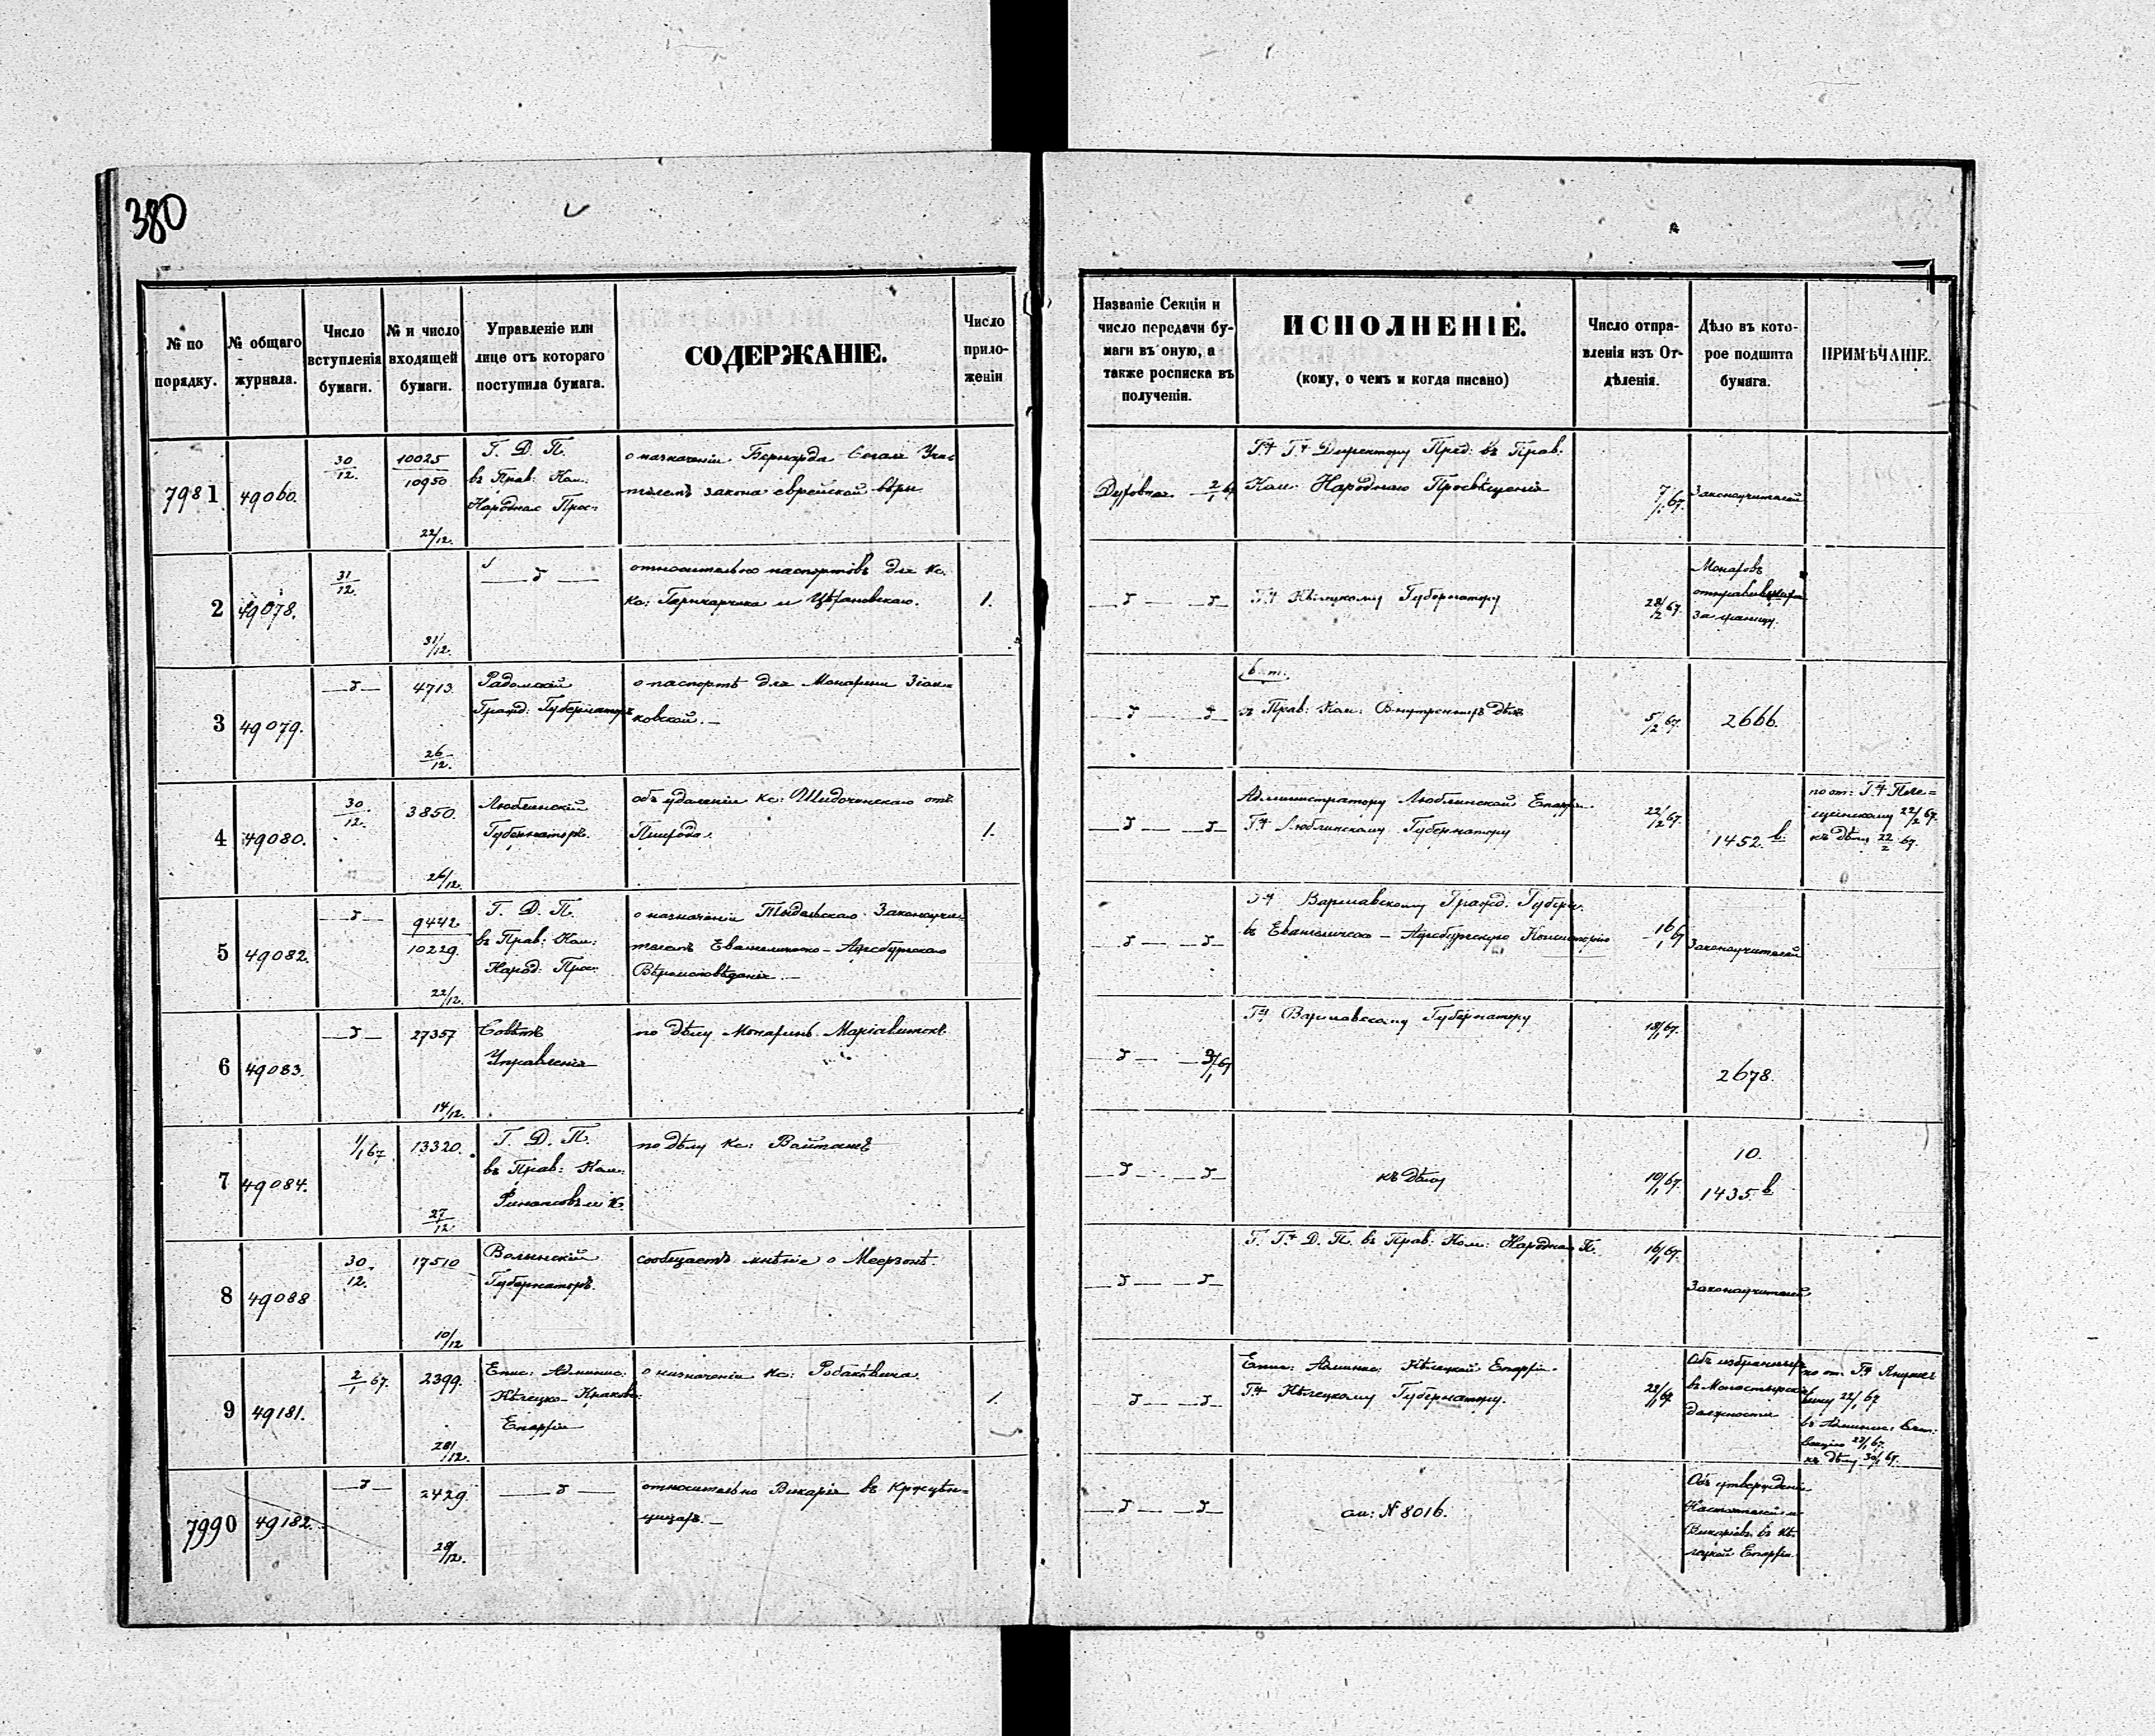 380
№ по порядку.
№ общаго журнала.
Число вступленія бумаги.
№ и число входящей бумаги.
Управленіе или лице отъ котораго поступила бумага.
СОДЕРЖАНІЕ.
Число приложеніи
Названіе Секціи и число передачи бумаги въ оную, а также росписка въ полученіи.
ИСПОЛНЕНІЕ.
(кому, о чемъ и когда писано)
Число отправленія изъ Отдѣленія.
Дѣло въ которое подшита бумага.
ПРИМѢЧАНІЕ.
7981
49060.
30/12.
10025
10950
22/12.
Г. Д. П.
въ Прав: Ком:
Народнаг Прос:
о назначеніи Бернарда Сегаля Учи
телемъ закона еврейской вѣры
Духовная 2/1 67
Гну Гл. Директору Пред: въ Прав.
Ком: Народнаго Просвѣщенія
7/1 67.
Законоучителей
2
49078.
31/12.
31/12.
относительно паспортовъ для Кс.
Кс:
1.
Гну Кѣлецкому Губернатору
28/2 67.
Монаховъ
за границу.
3
49079.
4713.
26/12.
Радомскій
Гражд: Губернаторъ
о паспортѣ для Монахини Зіон=
ковской. —
въ Прав: Ком: Внутреннихъ Дѣлъ
5/2 67.
2666.
4
49080.
30/12.
3850.
26/12.
Люблинскій
Губернаторъ.
объ удаленіи Кс: отъ
1.
Администратору Люблинской Епархіи.
Гну Люблинскому Губернатору
22/2 67.
1452 b
по от: Гну
22/2 67.
къ дѣлу 22/2 67.
5
49082.
9442
10229.
22/12.
Г. Д. П.
въ Прав: Ком:
Народ: Прос:
о назначеніи Законоучи=
телемъ Евангелическо-Аугсбургскаго
Вѣроисповѣданія. —
Гну Варшавскому Гражд. Губерн.
въ Евангелическо-Аугсбургскую Консисторію
16/1 67
Законоучителей
6
49083.
27357
14/12.
Совѣтъ
Управленія
по дѣлу Монахинь Маріавитокъ
3/1 67
Гну Варшавскому Губернатору
18/1 67.
2678.
7
49084.
1/1 67
13320.
27/12
Г. Д. П.
въ Прав: Ком:
Финансовъ и К.
по дѣлу Кс: Войташѣ
къ дѣлу
10/1 67.
10.
1435 b
8
49088
30/12.
17510
10/12
Волынскій
Губернаторъ.
сообщаетъ мнѣніе о Меерзонѣ.
Г. Гл. Д. П. въ Прав: Ком: Народнаг П.
16/1 67.
Законоучителей
9
49181.
2/1 67.
2399.
28/12.
Епис: Админис:
Кѣлецко-Краков:
Епархіи
о назначеніи Кс: Робаковича.
1.
Епис: Админис: Кѣлецкой Епархіи.
Гну Кѣлецкому Губернатору.
22/1 67
Объ избранныхъ
въ Монастырскія
должности
по от: Гну
22/1 67
въ Админис:
22/1 67.
къ дѣлу 30/1 67.
7990
49182.
2429.
28/12.
относительно Викарія въ
см: № 8016.
Объ утвержденіи
Настоятелей и
Викаріевъ въ Кѣ=
лецкой Епархіи